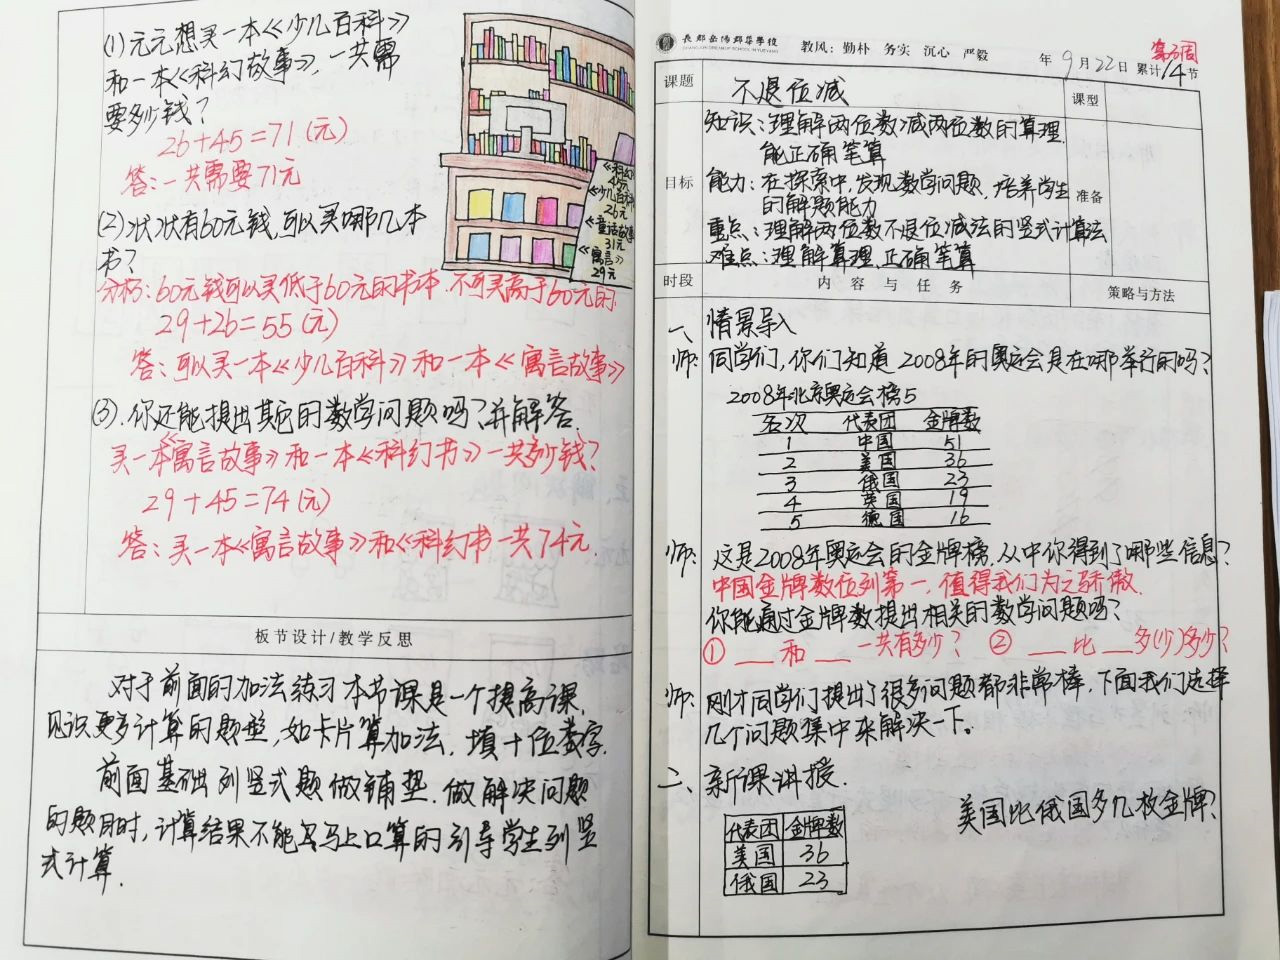 (1)元元想买一本《少儿百科》
和一本《科幻故事》，一共需
要多少钱？
26+45=71(元)
答：一共需要71元
(2)状状有60元钱,可以买哪几本
书？
分析：60元钱可以买低于60元的书本.不可买高于60元的
29+26=55(元)
答：可以买一本《少儿百科》和一本《寓言故事》
(3).你还能提出其它的数学问题吗？并解答.
买一本《寓言故事》和一本《科幻书》一共多少钱？
29+45=74(元)
答：买一本《寓言故事》和《科幻书一共74元.
《科幻
45元
《少儿百科
26元
《童话故事
31元
《寓言》
29元
板节设计/教学反思
对于前面的加法练习本节课是一个提高课,
见识更多计算的题型,如卡片算加法.填十位数字.
前面基础列竖式题做铺垫.做解决问题
的题目时,计算结果不能马上口算的引导学生列竖
式计算.
长郡岳阳郡华学校
教风：勤朴 务实 沉心 严毅
年9月22日 累计14节
课题 不退位减 课型
知识：理解两位数减两位数的算理.
能正确笔算
目标 能力：在探索中,发现数学问题,培养学生 准备
的解题能力
重点：理解两位数不退位减法的竖式计算法
难点：理解算理.正确笔算
时段 内容与任务 策略与方法
一、情景导入
师：同学们,你们知道2008年的奥运会是在哪举行的吗？
2008年北京奥运会榜5
名次 代表团 金牌数
1 中国 51
2 美国 36
3 俄国 23
4 英国 19
5 德国 16
师：这是2008年奥运会的金牌榜.从中你得到了哪些信息？
中国金牌数位列第一,值得我们为之骄傲.
你能通过金牌数提出相关的数学问题吗？
① __和__一共有多少？ ② __比__多(少)多少？
师：刚才同学们提出了很多问题都非常棒,下面我们选择
几个问题集中来解决一下。
二、新课讲授.
美国比俄国多几枚金牌？
代表团 金牌数
美国 36
俄国 23